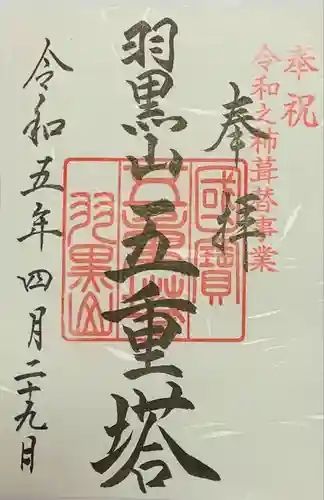 奉祝
令和之杮葺替事業
奉拝
羽黒山五重塔
國寶
五重塔
羽黒山
令和五年四月二十九日